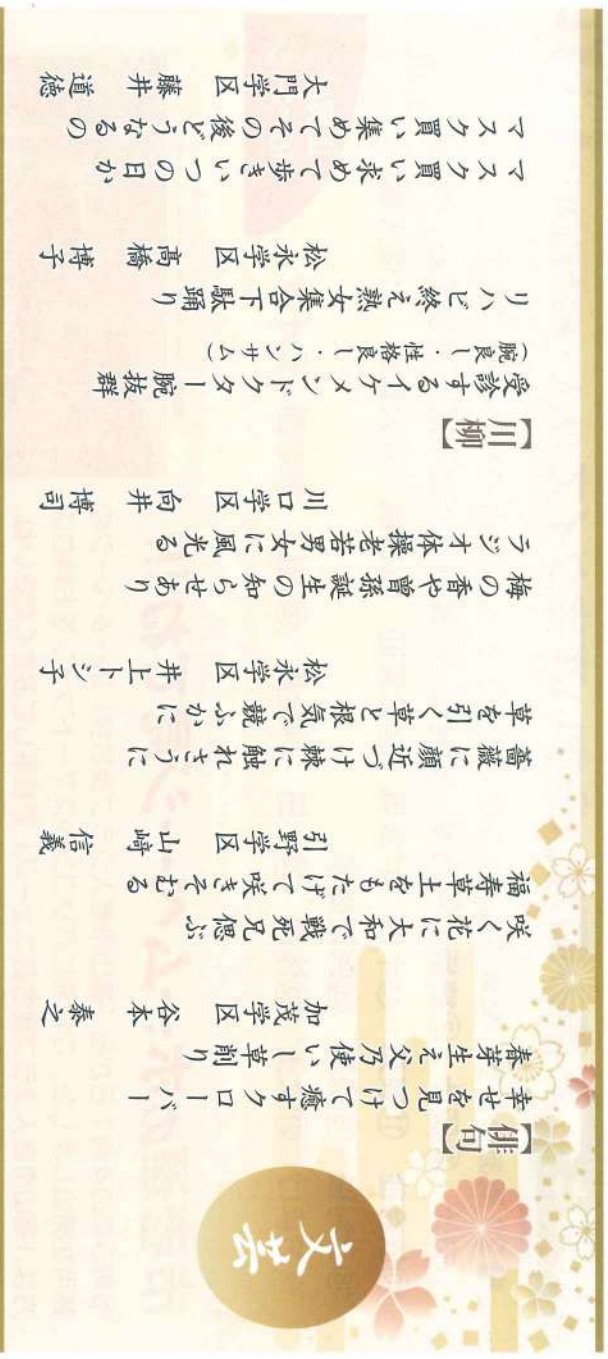 文芸
【俳句】
幸せを見つけて癒すクローバー
春芽生え父乃使いし草削り
加茂学区 谷本 泰之
咲く花に大和で戦死兄偲ぶ
福寿草土をもたげて咲きそむる
引野学区 山﨑 信義
薔薇に顔近づけ棘に触れさうに
草を引く草と根気で競ふかに
松永学区 井上トシ子
梅の香や曽孫誕生の知らせあり
ラジオ体操老若男女に風光る
川口学区 向井 博司
【川柳】
受診するイケメンドクター腕抜群
(腕良し・性格良し・ハンサム)
リハビ終え熟女集合下駄踊り
松永学区 高橋 博子
マスク買い求めて歩きいつの日か
マスク買い集めてその後どうなるの
大門学区 藤井 道徳